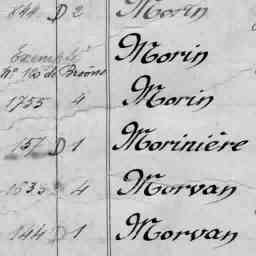 844 D 2 Morin
Exempté Morin
No 180 de Brains
1755 4 Morin
157 D 1 Morinière
1535 4 Morvan
144 D 1 Morvan